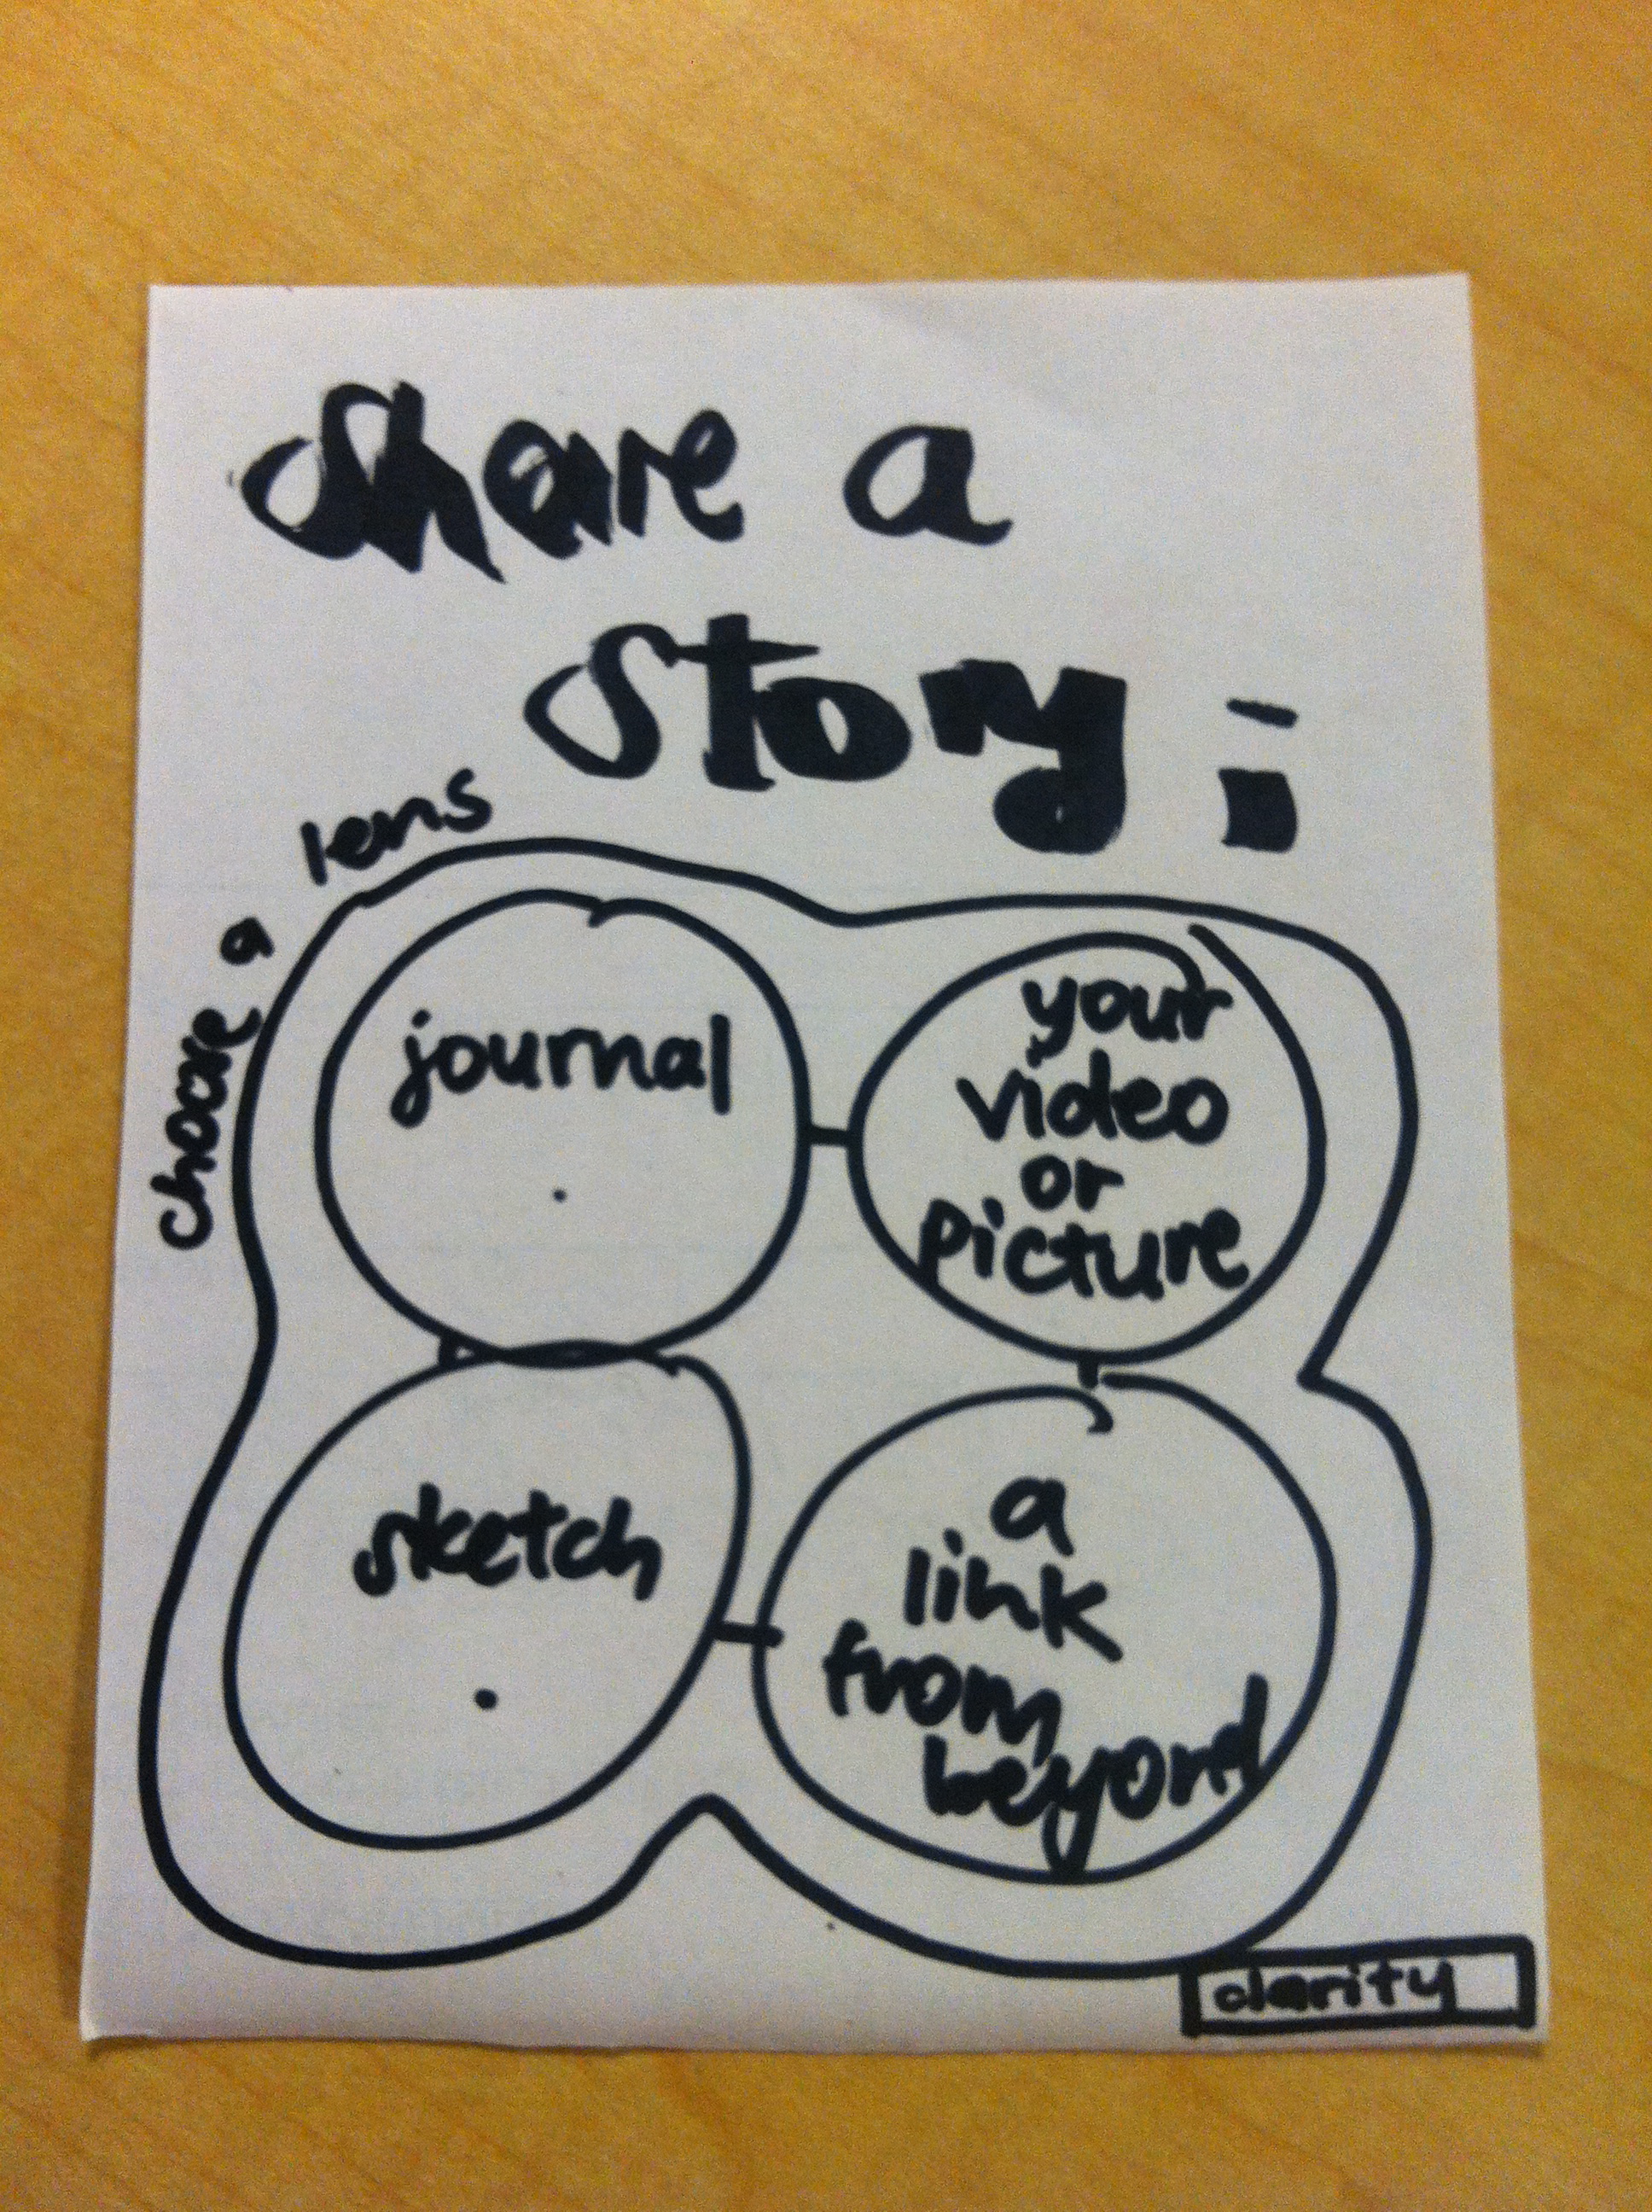 Share a
Story:
choose a lens
journal
your
video
or
picture
sketch
a
link
from
beyond
clarity